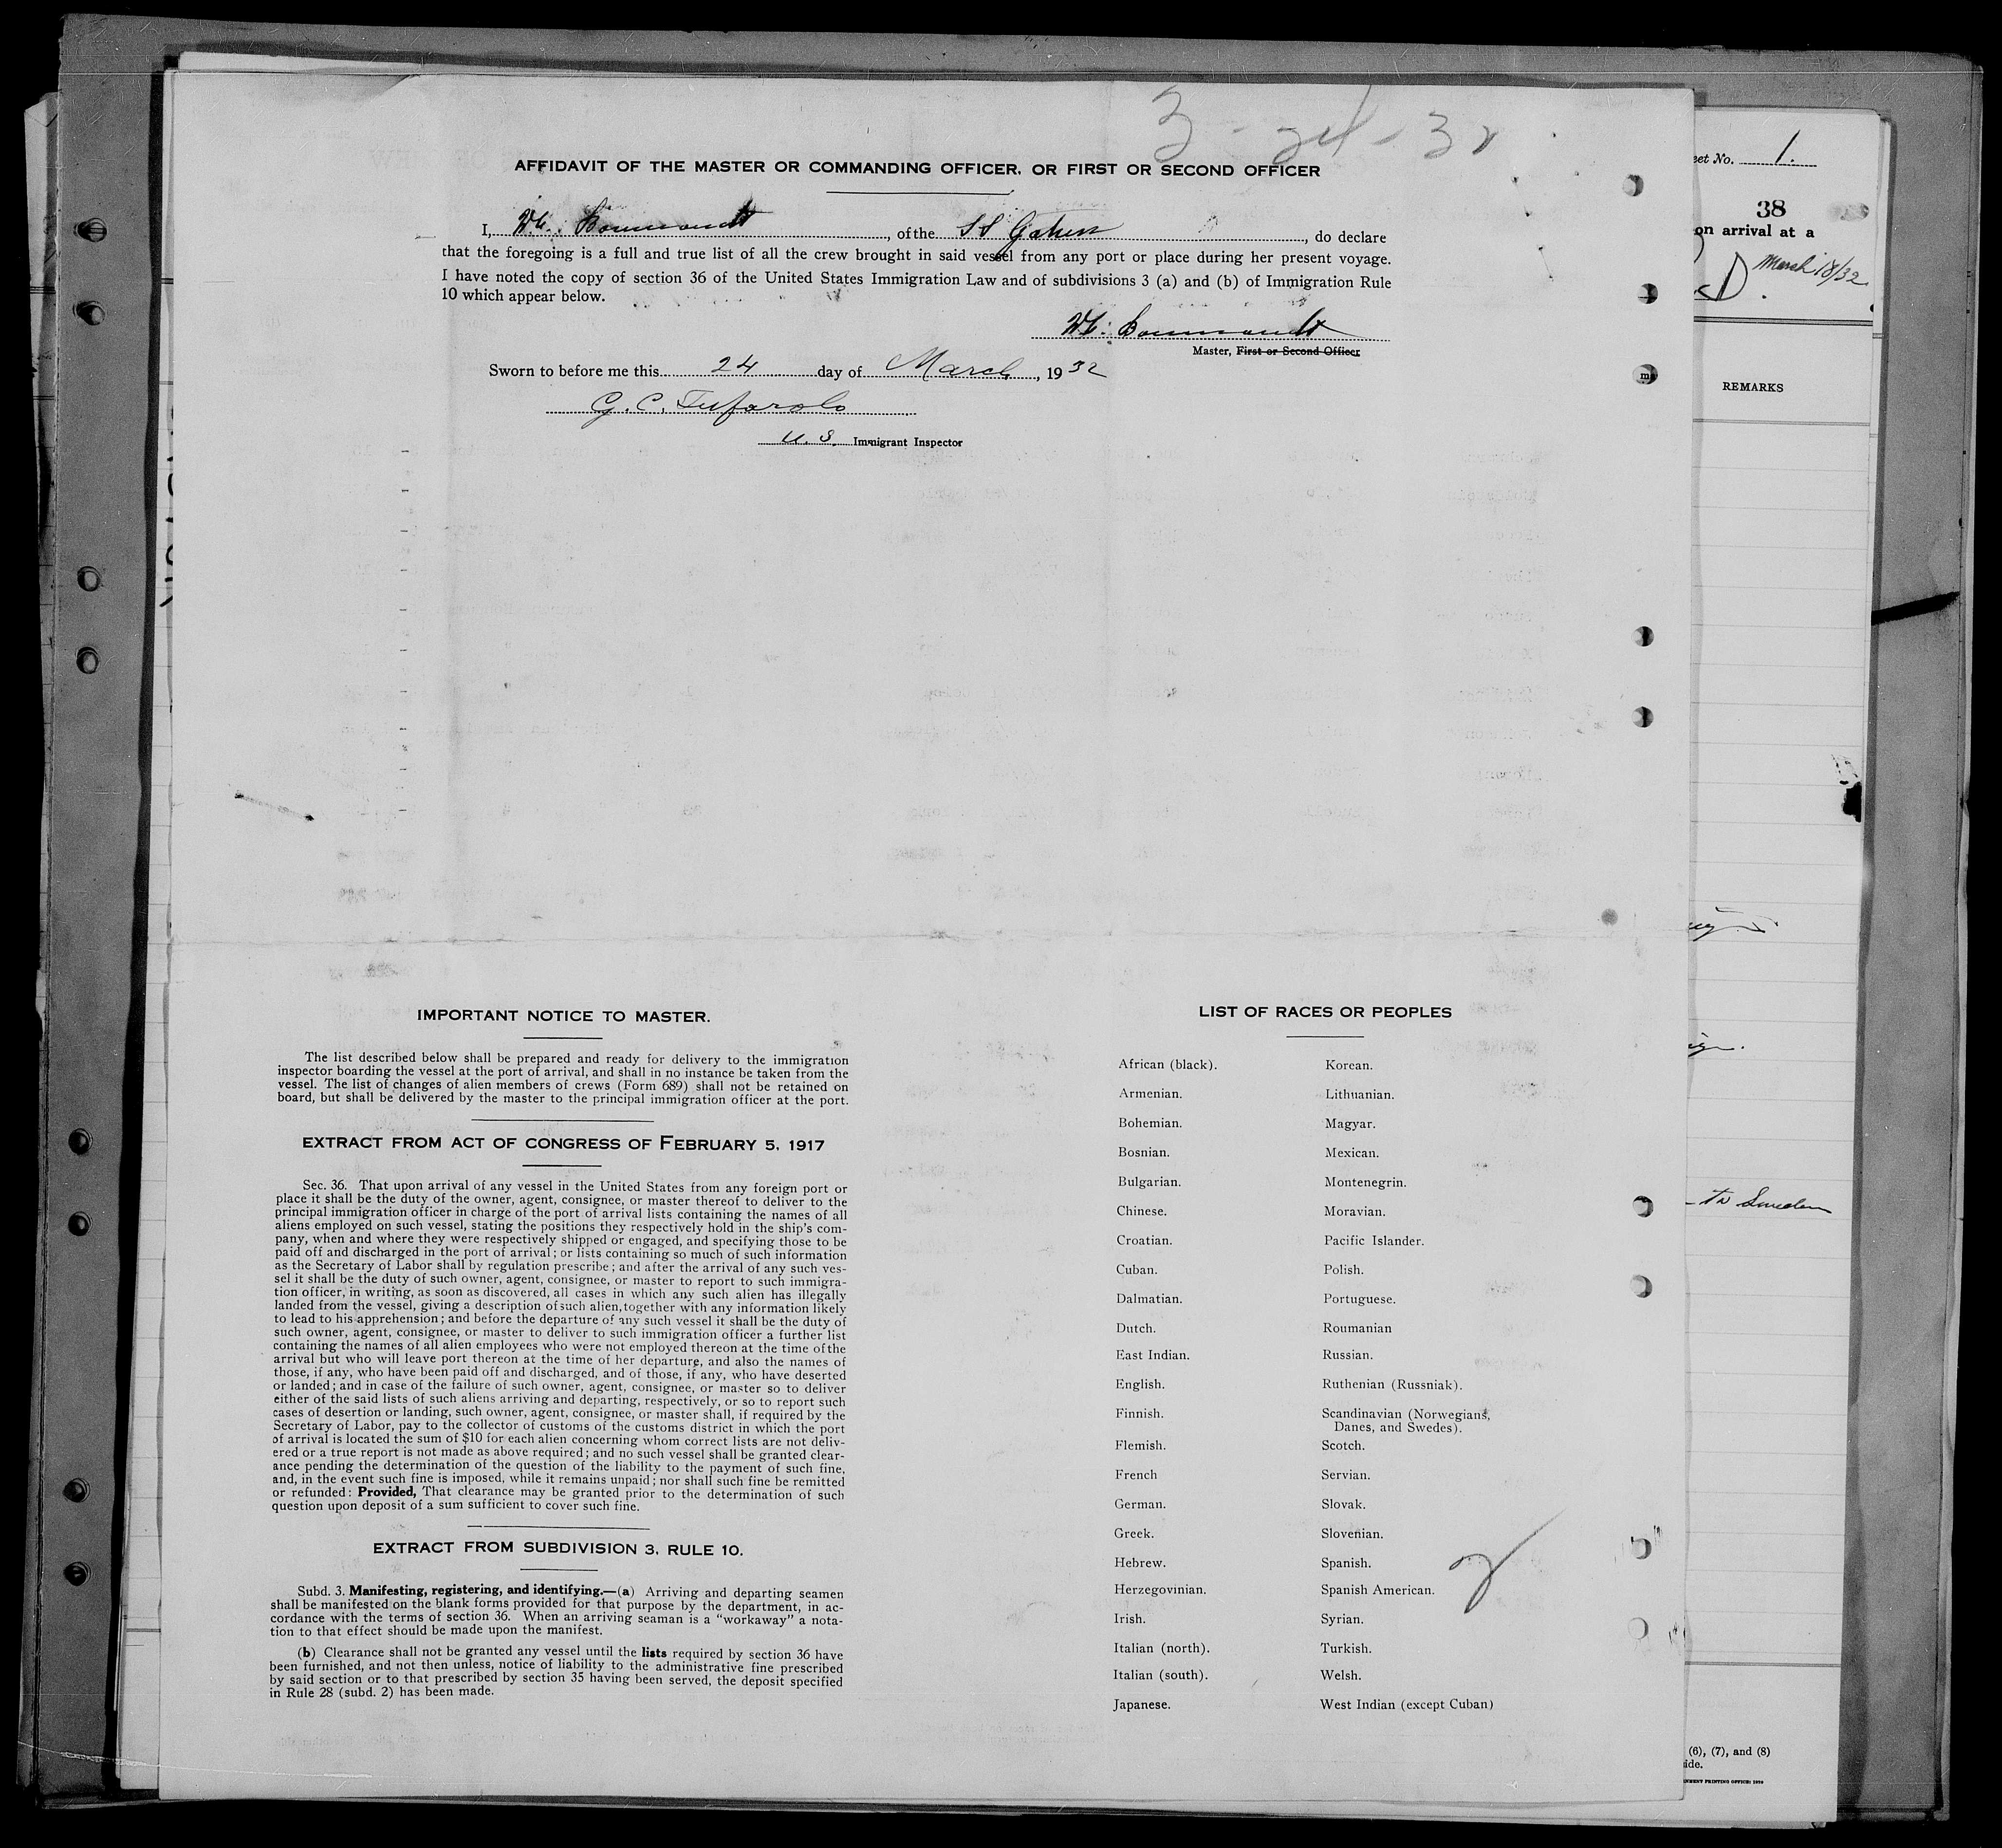 3-24-32
AFFIDAVIT OF THE MASTER OR COMMANDING OFFICER, OR FIRST OR SECOND OFFICER
I, of the SS , do declare
that the foregoing is a full and true list of all the crew brought in said vessel from any port or place during her present voyage.
I have noted the copy of section 36 of the United States Immigration Law and of subdivisions 3 (a) and (b) of Immigration Rule
10 which appear below.
Master, First or Second Officer
Sworn to before me this 24 day of March, 1932
G. C. Tufarolo
U. S. Immigrant Inspector
IMPORTANT NOTICE TO MASTER.
The list described below shall be prepared and ready for delivery to the immigration
inspector boarding the vessel at the port of arrival, and shall in no instance be taken from the
vessel. The list of changes of alien members of crews (Form 689) shall not be retained on
board, but shall be delivered by the master to the principal immigration officer at the port.
EXTRACT FROM ACT OF CONGRESS OF FEBRUARY 5, 1917
Sec. 36. That upon arrival of any vessel in the United States from any foreign port or
place it shall be the duty of the owner, agent, consignee, or master thereof to deliver to the
principal immigration officer in charge of the port of arrival lists containing the names of all
aliens employed on such vessel, stating the positions they respectively hold in the ship's com-
pany, when and where they were respectively shipped or engaged, and specifying those to be
paid off and discharged in the port of arrival; or lists containing so much of such information
as the Secretary of Labor shall by regulation prescribe; and after the arrival of any such ves-
sel it shall be the duty of such owner, agent, consignee, or master to report to such immigra-
tion officer, in writing, as soon as discovered, all cases in which any such alien has illegally
landed from the vessel, giving a description of such alien, together with any information likely
to lead to his apprehension; and before the departure of any such vessel it shall be the duty of
such owner, agent, consignee, or master to deliver to such immigration officer a further list
containing the names of all alien employees who were not employed thereon at the time of the
arrival but who will leave port thereon at the time of her departure, and also the names of
those, if any, who have been paid off and discharged, and of those, if any, who have deserted
or landed; and in case of the failure of such owner, agent, consignee, or master so to deliver
either of the said lists of such aliens arriving and departing, respectively, or so to report such
cases of desertion or landing, such owner, agent, consignee, or master shall, if required by the
Secretary of Labor, pay to the collector of customs of the customs district in which the port
of arrival is located the sum of $10 for each alien concerning whom correct lists are not deliv-
ered or a true report is not made as above required; and no such vessel shall be granted clear-
ance pending the determination of the question of the liability to the payment of such fine,
and, in the event such fine is imposed, while it remains unpaid; nor shall such fine be remitted
or refunded: Provided, That clearance may be granted prior to the determination of such
question upon deposit of a sum sufficient to cover such fine.
EXTRACT FROM SUBDIVISION 3, RULE 10.
Subd. 3. Manifesting, registering, and identifying.—(a) Arriving and departing seamen
shall be manifested on the blank forms provided for that purpose by the department, in ac-
cordance with the terms of section 36. When an arriving seaman is a "workaway" a nota-
tion to that effect should be made upon the manifest.
(b) Clearance shall not be granted any vessel until the lists required by section 36 have
been furnished, and not then unless, notice of liability to the administrative fine prescribed
by said section or to that prescribed by section 35 having been served, the deposit specified
in Rule 28 (subd. 2) has been made.
LIST OF RACES OR PEOPLES
African (black).
Armenian.
Bohemian.
Bosnian.
Bulgarian.
Chinese.
Croatian.
Cuban.
Dalmatian.
Dutch.
East Indian.
English.
Finnish.
Flemish.
French
German.
Greek.
Hebrew.
Herzegovinian.
Irish.
Italian (north).
Italian (south).
Japanese.
Korean.
Lithuanian.
Magyar.
Mexican.
Montenegrin.
Moravian.
Pacific Islander.
Polish.
Portuguese.
Roumanian
Russian.
Ruthenian (Russniak).
Scandinavian (Norwegians,
Danes, and Swedes).
Scotch.
Servian.
Slovak.
Slovenian.
Spanish.
Spanish American.
Syrian.
Turkish.
Welsh.
West Indian (except Cuban)
eet No. 1.
38
on arrival at a
March 18/32
REMARKS
to Sweden
(6), (7), and (8)
ide.